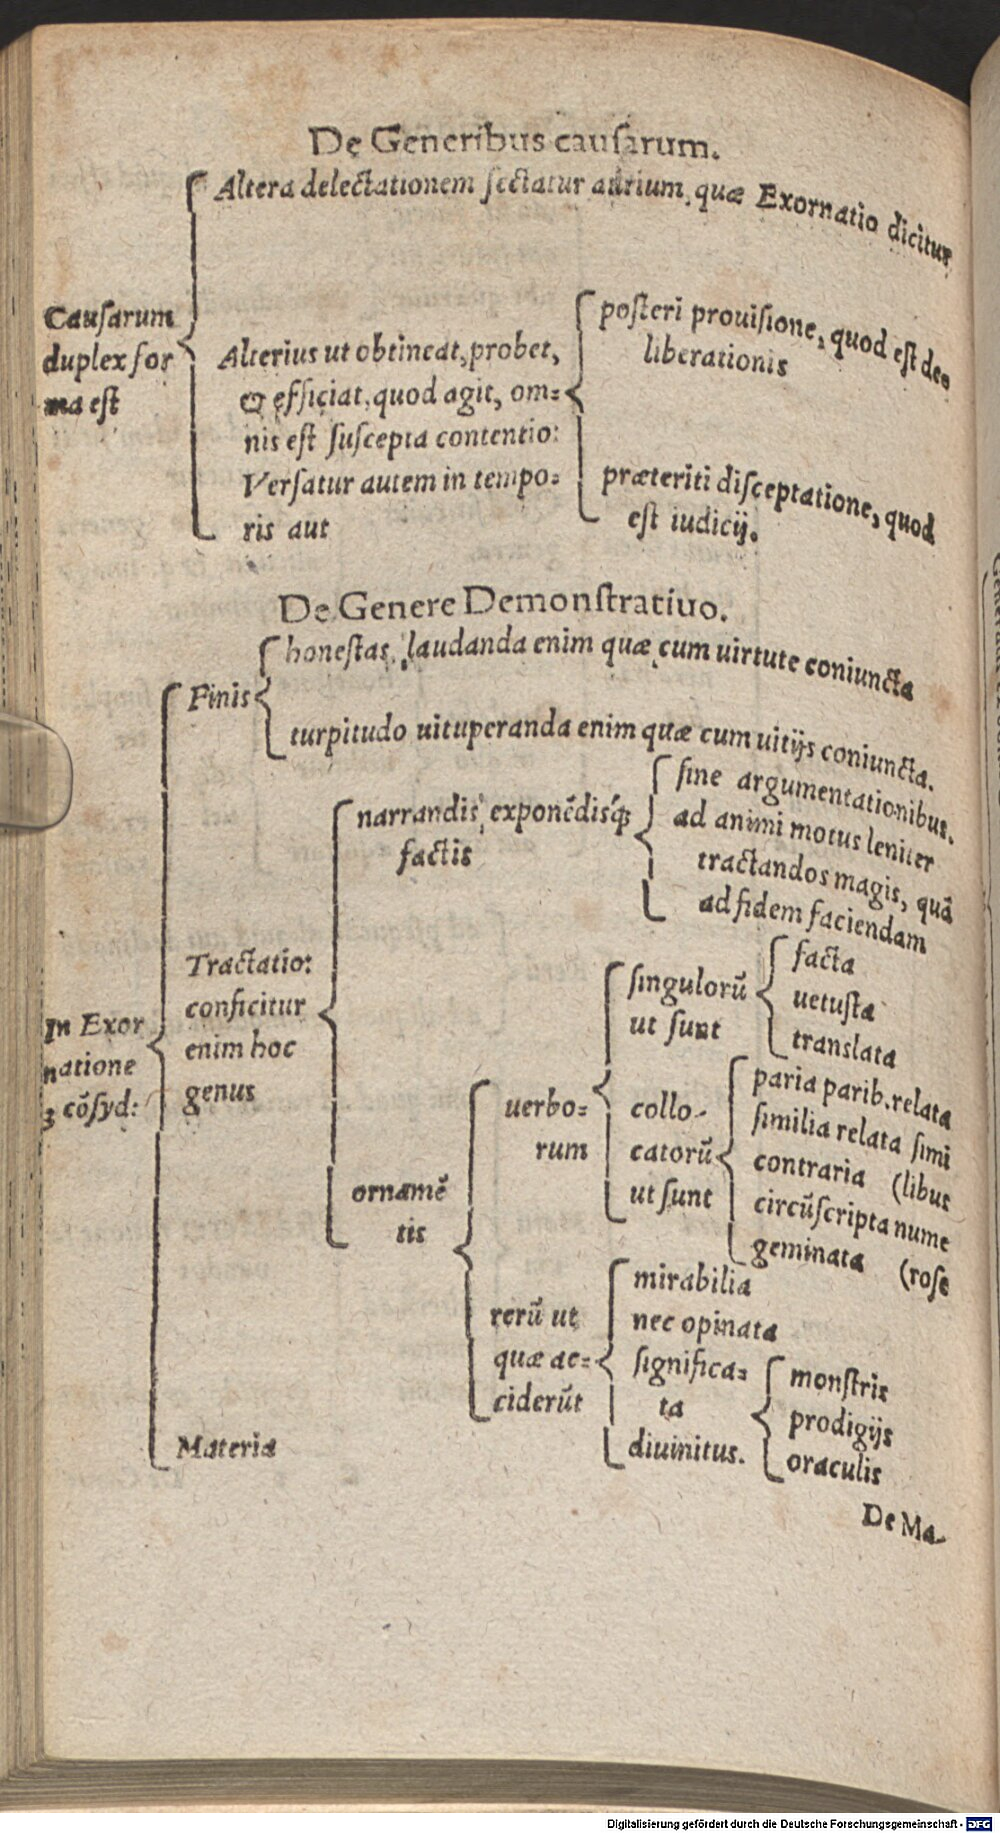 De Generibus causarum.
Altera delectationem sectatur aurium, quæ Exornatio dicitur
Causarum
duplex for
ma est
Alterius ut obtineat, probet,
& efficiat, quod agit, om=
nis est suscepta contentio:
Versatur autem in tempo=
ris aut
posteri prouisione, quod est dee
liberationis
præteriti disceptatione, quod
est iudicij.
De Genere Demonstratiuo.
In Exor
natione
ꝫ cōsyd:
Finis
honestas, laudanda enim quæ cum uirtute coniuncta
turpitudo uituperanda enim quæ cum uitijs coniuncta.
Tractatio:
conficitur
enim hoc
genus
narrandis, exponēdisq́;
factis
sine argumentationibus.
ad animi motus leniter
tractandos magis, quā
ad fidem faciendam
ornamē
tis
uerbo=
rum
singulorū
ut sunt
facta
uetusta
translata
collo-
catorū
ut sunt
paria parib. relata
similia relata simi
contraria (libus
circūscripta nume
geminata (rose
rerū ut
quæ ac=
ciderūt
mirabilia
nec opinata
significa=
ta
diuinitus.
monstris
prodigijs
oraculis
Materia
De Ma-
Digitalisierung gefördert durch die Deutsche Forschungsgemeinschaft - DFG